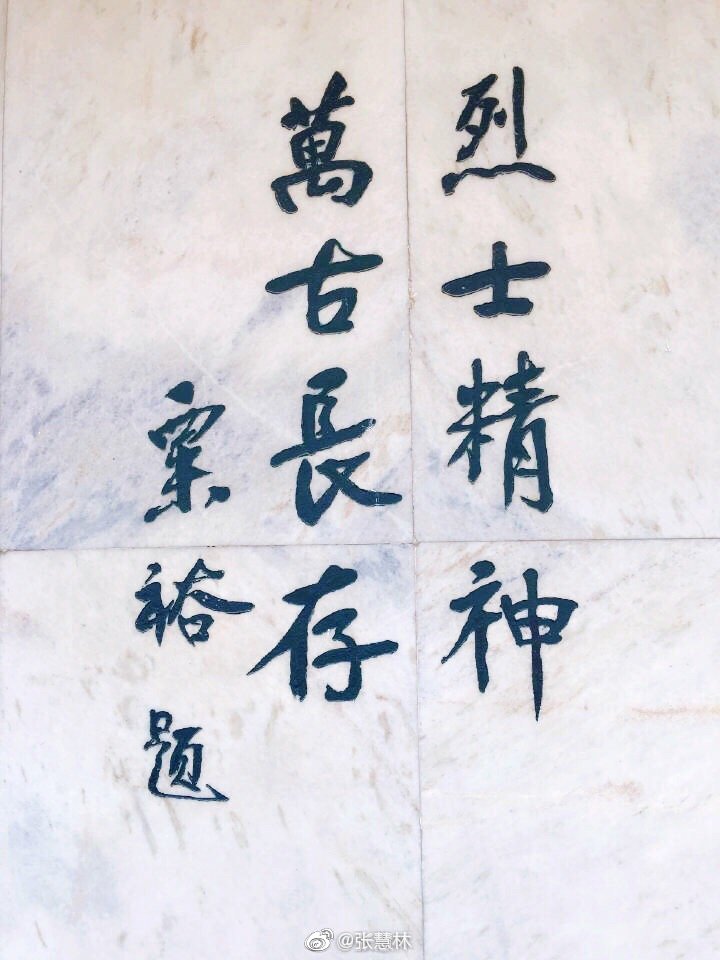 烈士精神
萬古長存
粟裕题
@张慧林